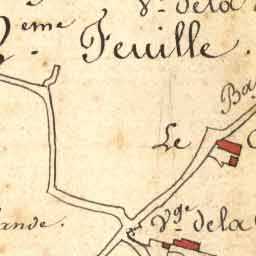 V. de la
2.eme Feuille.
Ba
Le
ande.
V.ge de la